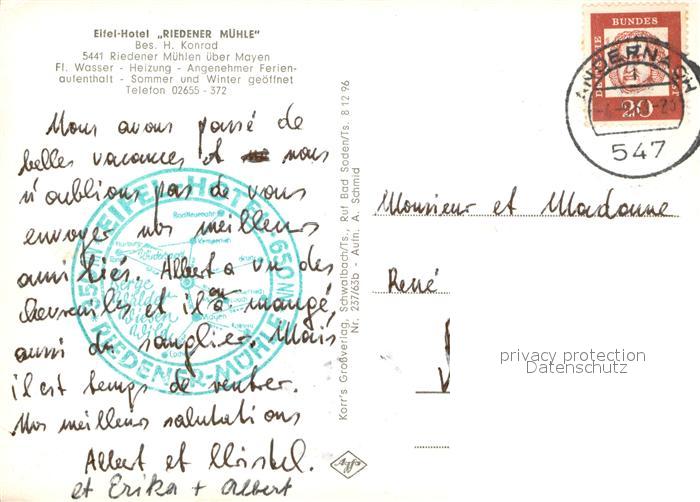 Eifel-Hotel „RIEDENER MÜHLE"
Bes. H. Konrad
5441 Riedener Mühlen über Mayen
Fl. Wasser - Heizung - Angenehmer Ferien-
aufenthalt - Sommer und Winter geöffnet
Telefon 02655 - 372
Nous avons passé de
belles vacances et nous
n'oublions pas de vous
envoyer nos meilleurs
amitiés. Albert a vu des
chevreuils et il a mangé,
aussi du sanglier. Mais
il est temps de rentrer.
Nos meilleurs salutations
Albert et Christel.
et Erika + Albert
EIFEL-HOTEL
RIEDENER-MÜHLE
Berge
Wälder
Wiesen
Wild
Mayen
Kempenich
Korr's Großverlag, Schwalbach/Ts., Ruf Bad Soden/Ts. 8 12 96
Nr. 237/63b - Aufn. A. Schmid
Agfa
DEUTSCHE
BUNDES
20
ANDERNACH
547
Monsieur et Madame
René
privacy protection
Datenschutz